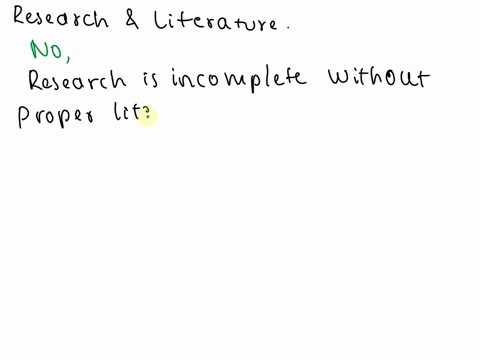 Research & Literature.
No,
Research is incomplete without
proper lit